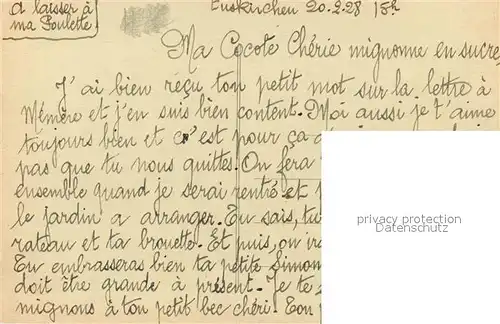 A laisser à
ma Poulette
Euskirchen 20.2.28 18h
Ma Cocote Chérie mignonne en sucre
J'ai bien réçu ton petit mot sur la lettre à
Mémère et j'en suis bien content. Moi aussi je t'aime
toujours bien et c'est pour ça
pas que tu nous quittes. On fera
ensemble quand je serai rentré et
le jardin a arranger. Tu sais, tu
rateau et ta brouette. Et puis, on ira
Tu embrasseras bien ta petite Simon
doit être grande à présent. Je te
mignous à ton petit bec chéri. Ton
privacy protection
Datenschutz